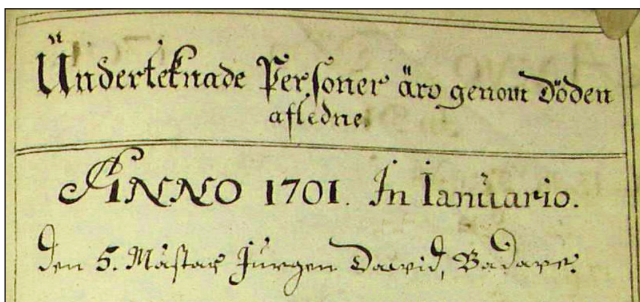 Ünderteknade Personer äro genom Döden
afledne.
ANNO 1701. In Ianüario.
den 5. Mästar Jürgen Dawid, Badare.